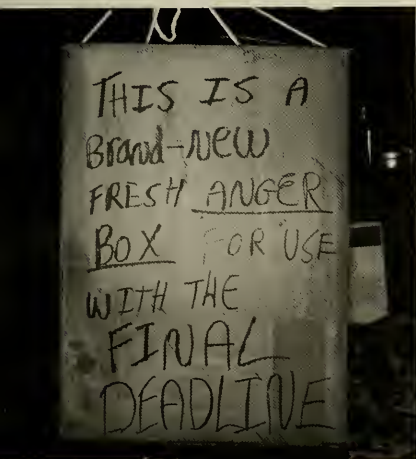 THIS IS A
Brand-NEW
FRESH ANGER
BOX FOR USE
WITH THE
FINAL
DEADLINE